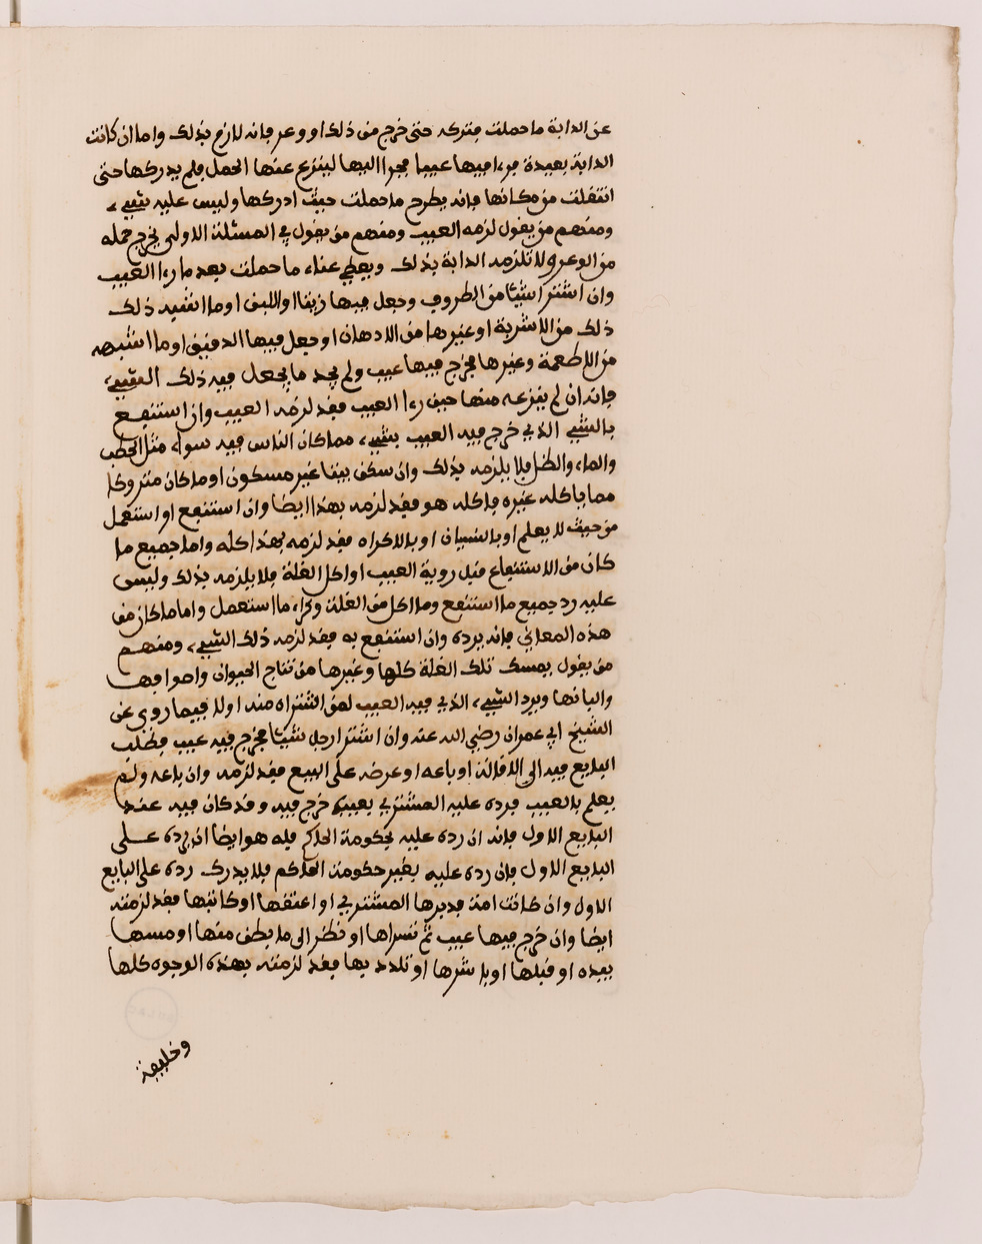 عن الدابة ما حملت فتركه حتى خرج من ذلك او وعر فانه لازم بذلك واما ان كانت
الدابة بعيدة فرءا فيها عيبا فجرا اليها لينزع عنها الحمل فلم يدركها حتى
انتقلت من مكانها فانه يطرح ما حملت حيث ادركها وليس عليه شيء
ومنهم من يقول لزمه العيب ومنهم من يقول في المسئلة الاولى يخرج حمله
من الوعر ولا تلزمه الدابة بذلك ويعطي عناء ما حملت بعد ما رءا العيب
وان اشترا شيئا من الظروف وجعل فيها زيتا او اللبن او ما اشبه ذلك
ذلك من الاشربة او غيرها من الادهان او جعل فيها الدقيق او ما اشبهه
من الاطعمة وغيرها فخرج فيها عيب ولم يجد ما يجعل فيه ذلك الشيء
فانه ان لم ينزعه منها حين رءا العيب فقد لزمه العيب وان استنفع
بالشيء الذي خرج فيه العيب بشيء مما كان الناس فيه سواء مثل الحطب
والماء والظل فلا يلزمه بذلك وان سكن بيتا غير مسكون او ما كان متروكا
مما ياكله غيره فاكله هو فقد لزمه بهذا ايضا وان استنفع او استعمل
من حيث لا يعلم او بالنسيان او بالاكراه فقد لزمه بهذا كله واما جميع ما
كان من الاستنفاع قبل روية العيب او اكل الغلة فلا يلزمه بذلك وليس
عليه رد جميع ما استنفع وما اكل من الغلة وكراء ما استعمل واما ما كان من
هذه المعاني فانه يرده وان استنفع به فقد لزمه ذلك الشيء ومنهم
من يقول يمسك تلك الغلة كلها وغيرها من نتاج الحيوان واصوافها
والبانها ويرد الشيء الذي فيه العيب لمن اشتراه منه اولا فيما روى عن
الشيخ ابي عمران رضي الله عنه وان اشترا رجل شيئا فخرج فيه عيب فطلب
البايع فيه الى الاقالة او باعه او عرضه على البيع فقد لزمه وان باعه ولم
يعلم بالعيب فرده عليه المشتري بعيب خرج فيه وقد كان فيه عند
البايع الاول فانه ان رده عليه بحكومة الحاكم فله هو ايضا ان يرده على
البايع الاول فان رده عليه بغير حكومة الحاكم فلا يدرك رده على البايع
الاول وان كانت امة فدبرها المشتري او اعتقها او كاتبها فقد لزمته
ايضا وان خرج فيها عيب ثم تسراها او نظر الى ما بطن منها او مسها
بيده او قبلها او باشرها او تلذذ بها فقد لزمته بهذه الوجوه كلها
وخليفة